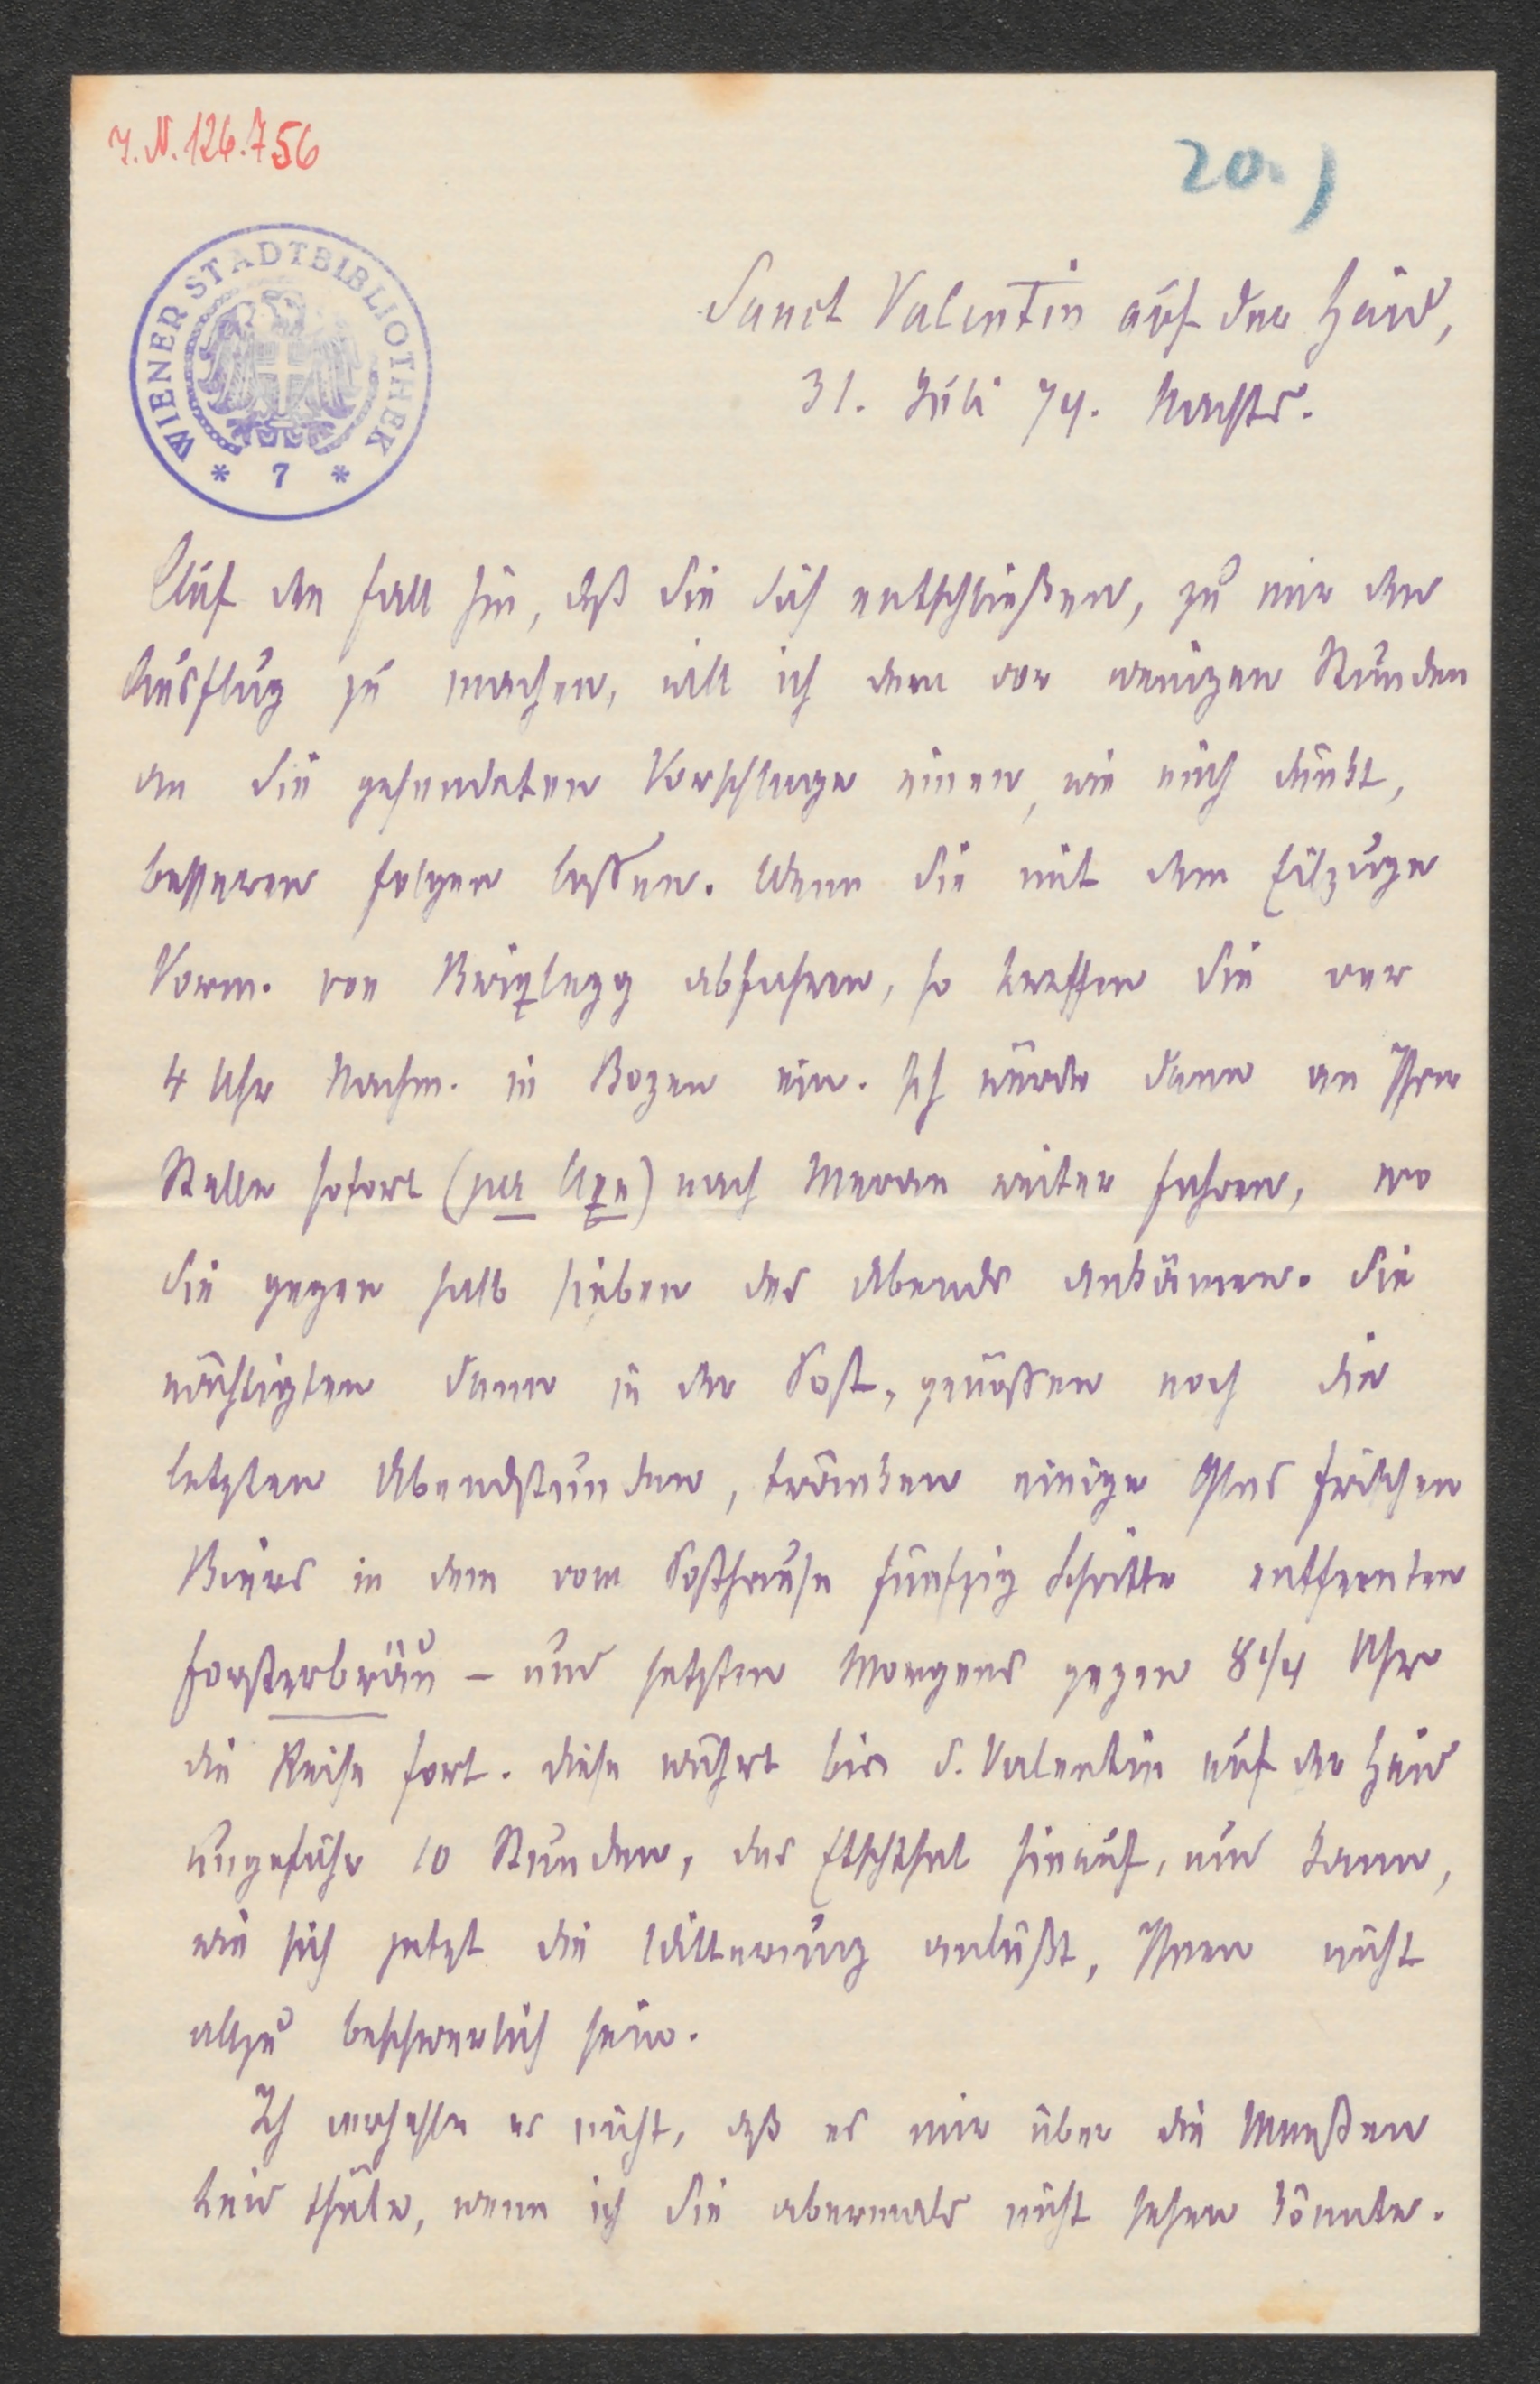 J. N. 126.756
20.)
WIENER STADTBIBLIOTHEK
* 7 *
Sanct Valentin auf der Haid,
31. Juli 74. Nachts.
Auf den Fall hin, daß Sie sich entschließen, zu mir den
Ausflug zu machen, will ich dem vor wenigen Stunden
an Sie gesendeten Vorschlage einen, wie mich dünkt,
besseren folgen lassen. Wenn Sie mit dem Eilzuge
Vorm. von Brixlegg abfahren, so treffen Sie vor
4 Uhr Nachm. in Bozen ein. Ich würde dann an Ihrer
Stelle sofort (per Axe) nach Meran weiter fahren, wo
Sie gegen halb sieben des Abends ankämen. Sie
nächtigten dann in der Post, genössen noch die
letzten Abendstunden, tränken einige Glas frischen
Biers in dem vom Posthause fünfzig Schritte entfernten
Forsterbräu – und setzten Morgens gegen 8 1/4 Uhr
die Reise fort. Diese währt bis S. Valentin auf der Haid
ungefähr 10 Stunden, das Etschthal hinauf, und kann,
wie sich jetzt die Witterung anläßt, Ihnen nicht
allzu beschwerlich sein.
Ich verhehle es nicht, daß es mir über die Maaßen
leid thäte, wenn ich Sie abermals nicht sehen könnte.